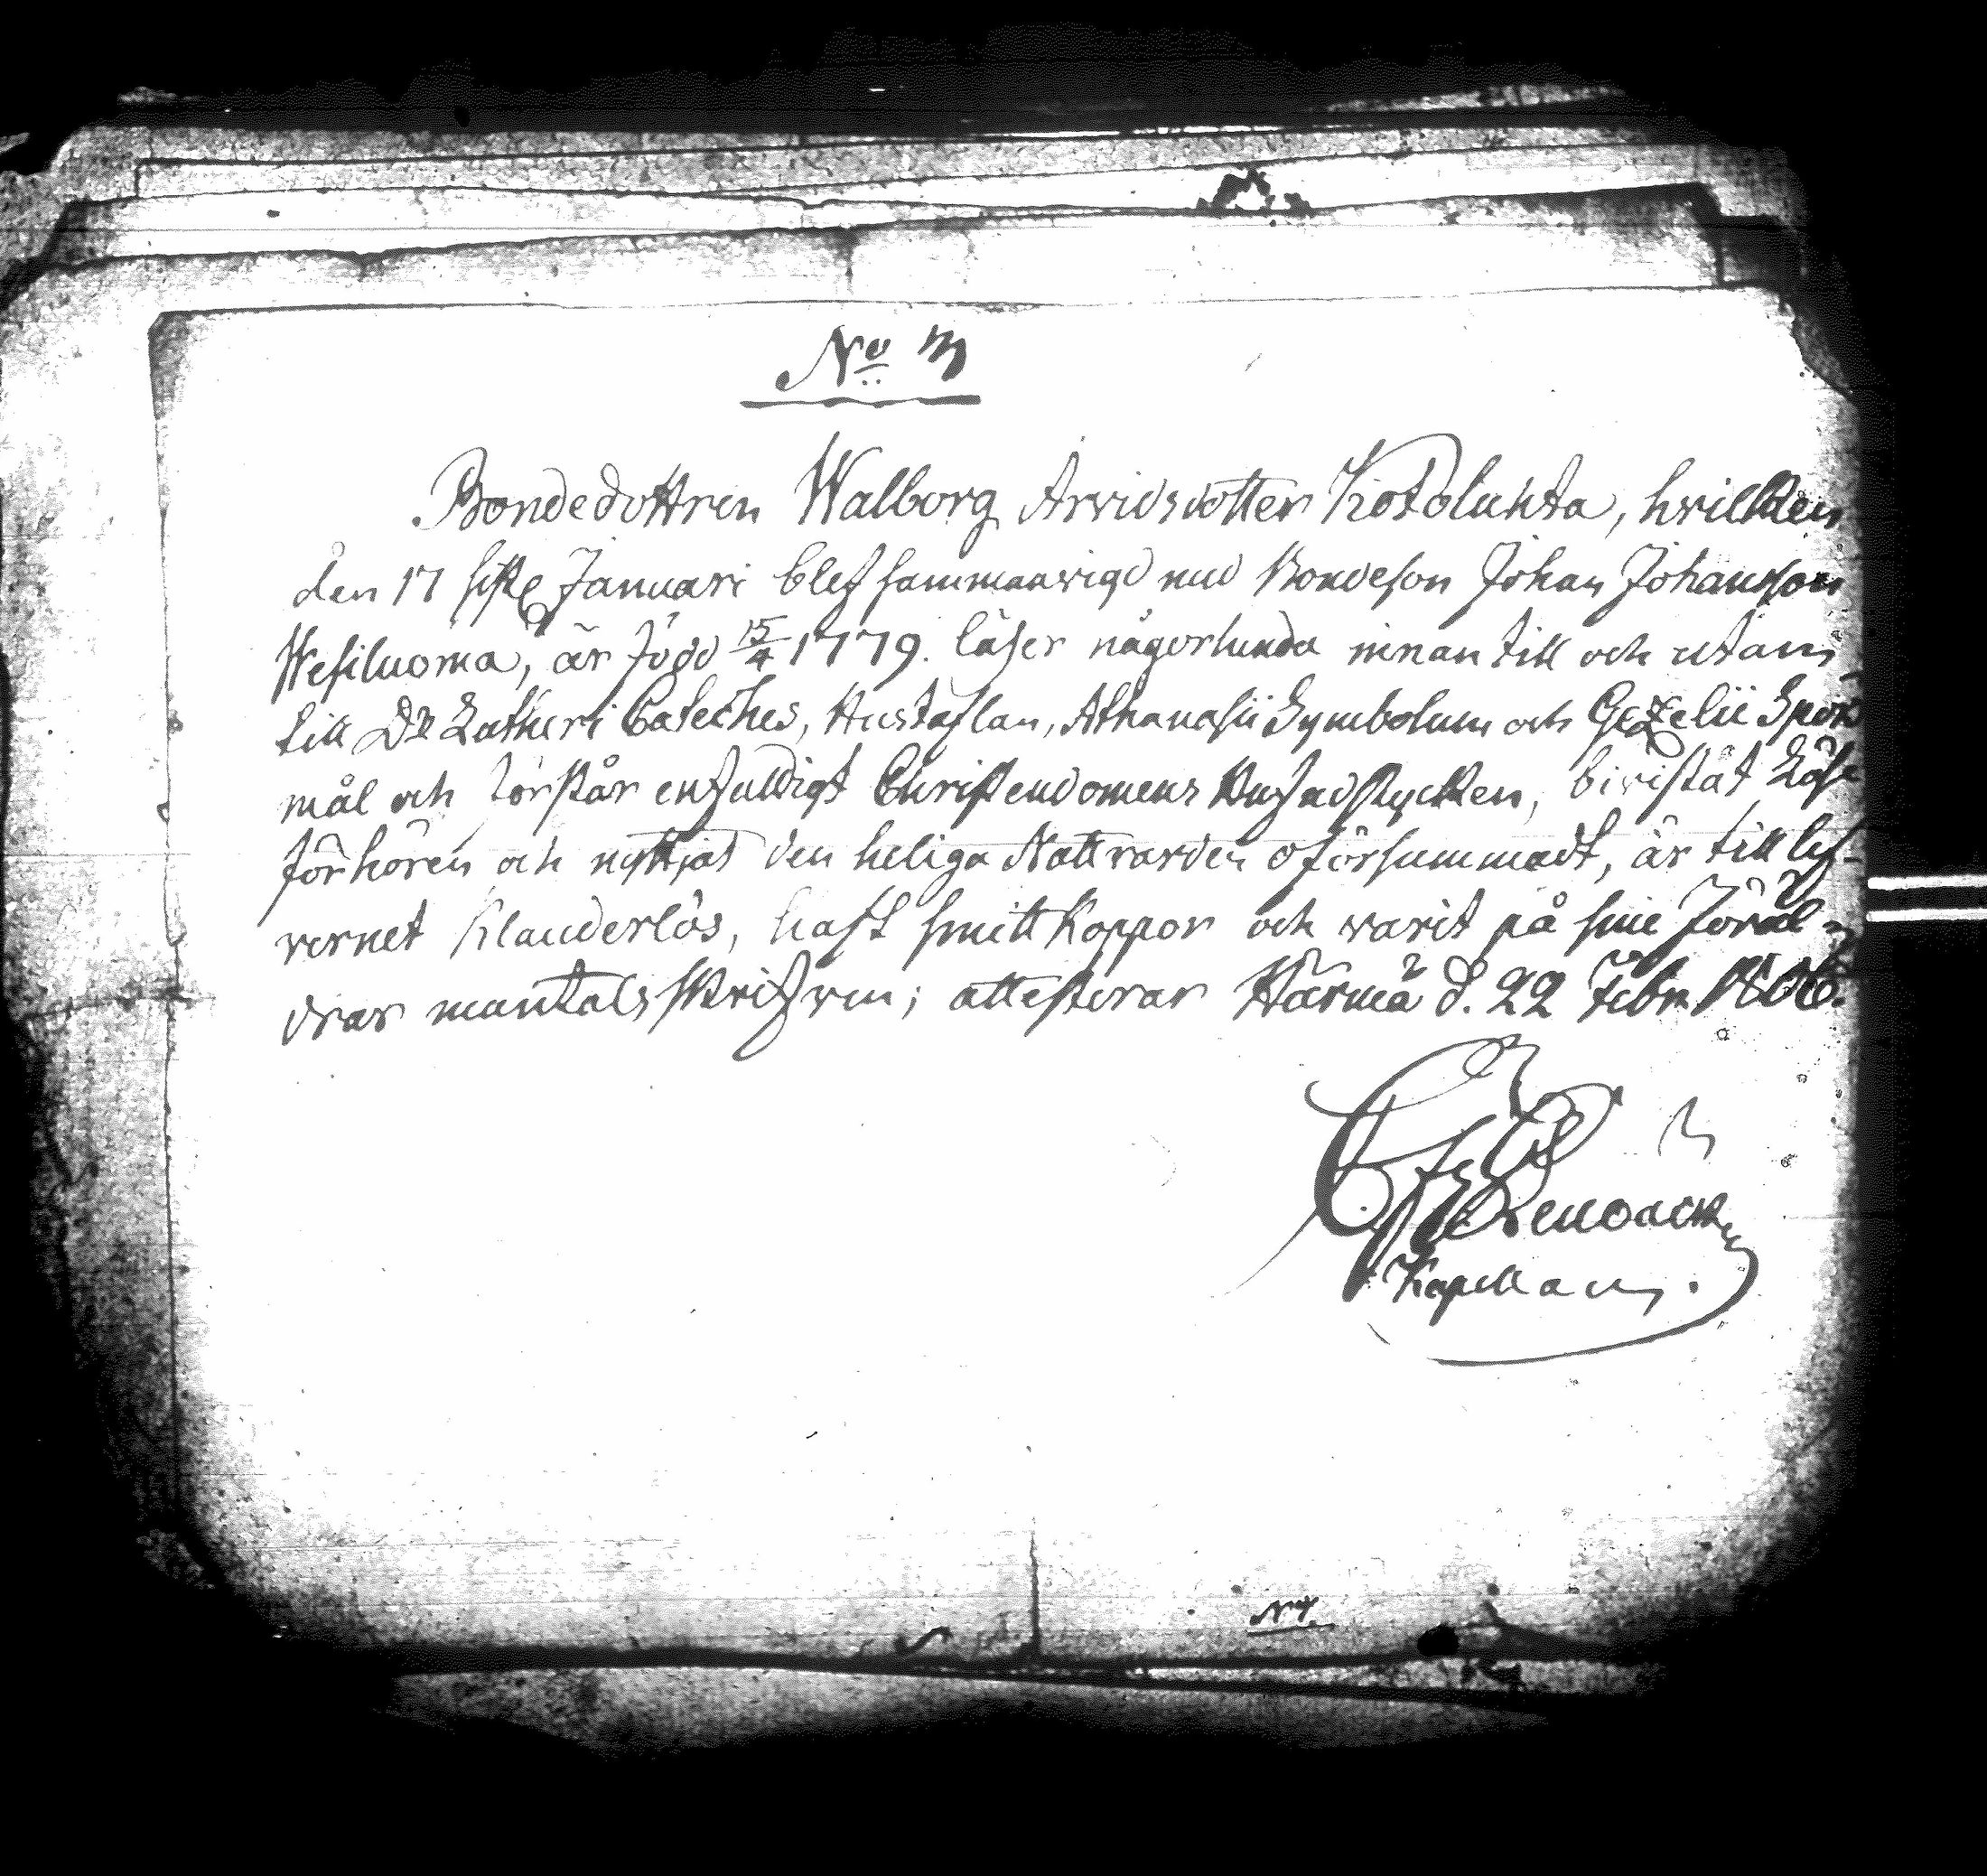 No 3
Bondedottren Walborg Arvidsdotter Kotoluhta, hvilken
den 17 siste Januari blef sammanvigd med Bondeson Johan Johansson
Wesiluoma, är född 15/4 1779. läser någorlunda innan till och utan
till Dr Lutheri Catethes, Hustaflan, Athanasii Symbolum och Gezelii Spörs
mål och förstår enfaldigt Christendomens Hufvudstycken, bivistat Läse
förhören och nyttjat den heliga Nattvarden oförsummadt, är till lef-
vernet klanderlös, haft smittkoppor och warit på sine Föräl-
drars mantalsskrifven; attesterar Härmä d. 22 Febr. 1806.
Kapellan.